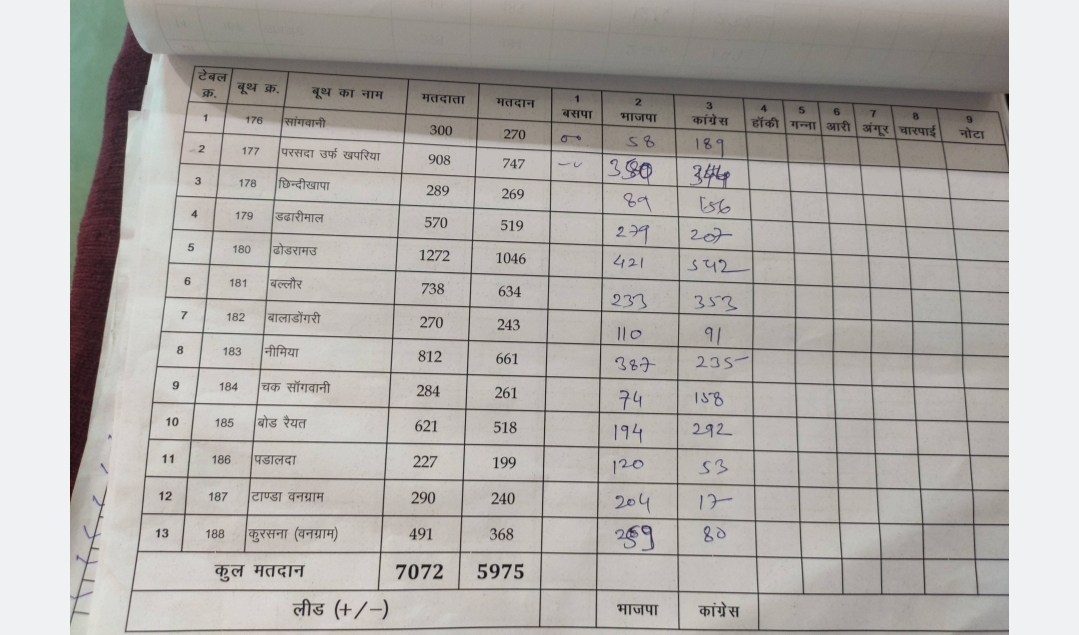 टेबल क्र. बूथ क्र. बूथ का नाम मतदाता मतदान 1 बसपा 2 भाजपा 3 कांग्रेस 4 हॉकी 5 गन्ना 6 आरी 7 अंगूर 8 चारपाई 9 नोटा
1 176 सांगवानी 300 270 58 189
2 177 परसदा उर्फ खपरिया 908 747
3 178 छिन्दीखापा 289 269 89 156
4 179 डढारीमाल 570 519 279 207
5 180 ढोडरामउ 1272 1046 421 542
6 181 बल्लौर 738 634 233 353
7 182 बालाडोंगरी 270 243 110 91
8 183 नीमिया 812 661 387 235
9 184 चक सॉगवानी 284 261 74 158
10 185 बोड रैयत 621 518 194 292
11 186 पडालदा 227 199 120 53
12 187 टाण्डा वनग्राम 290 240 204 17
13 188 कुरसना (वनग्राम) 491 368 80
कुल मतदान 7072 5975
लीड (+/–) भाजपा कांग्रेस